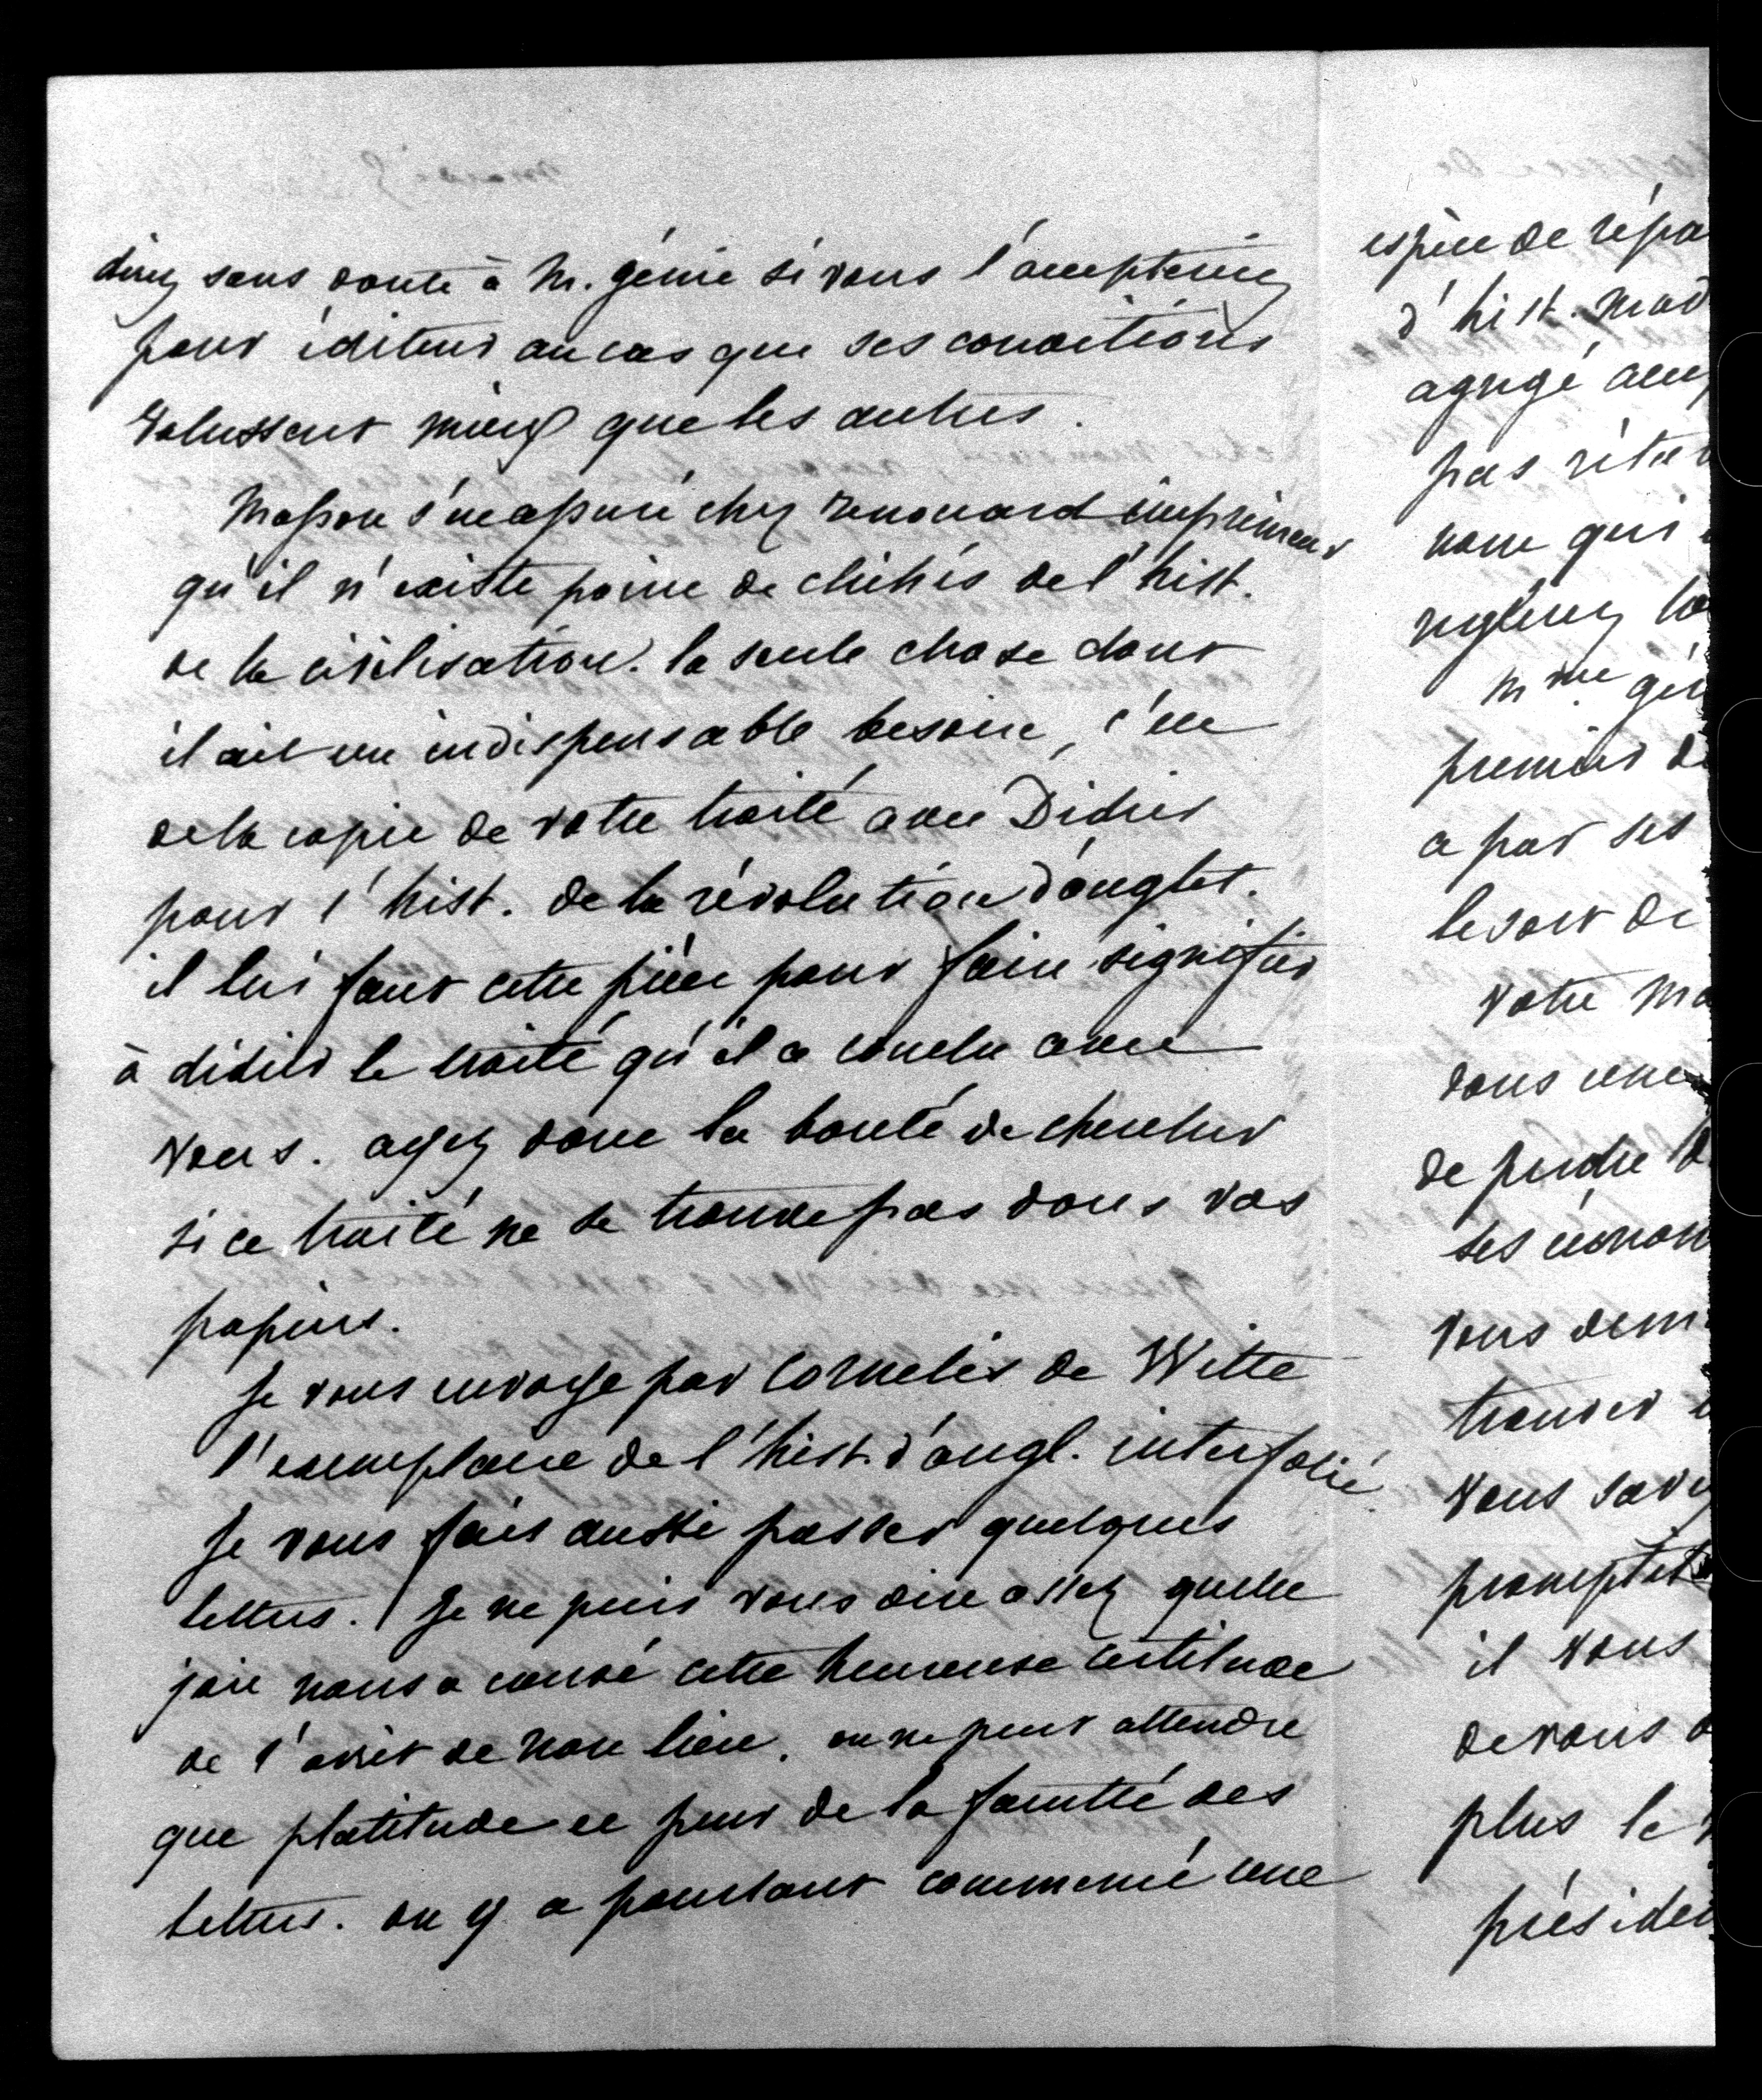 direz sans doute à M. génie si vous l'accepteriez
pour éditeur au cas que ses conditions
valussent mieux que les autres.
Masson s'est assuré chez renouard imprimeur
qu'il n'existe point de clichés de l'hist.
de la civilisation. la seule chose dont
il ait un indispensable besoin, c'est
de la copie de votre traité avec Didier
pour l'hist. de la révolution d'anglet.
il lui faut cette pièce pour faire signifier
à didier le traité qu'il a conclu avec
vous. ayez donc la bonté de chercher
si ce traité ne se trouve pas dans vos
papiers.
Je vous envoye par Cornelis de Witte
l'exemplaire de l'hist. d'angl. interfolié.
Je vous fais aussi passer quelques
lettres. Je ne puis vous dire assez quelle
joie nous a causé cette heureuse certitude
de l'arrêt de non lieu. on ne peut attendre
que platitude et peur de la faculté des
lettres. on y a pourtant commencé une
espèce de répa
d'hist. mod
agrégé
pas
nom qui
M me gén
premier d
a par ses
le sort de
votre Ma
dans une
de perdre
ses
vous dem
trouver
vous save
promptit
il vous
de vous
plus le
présiden